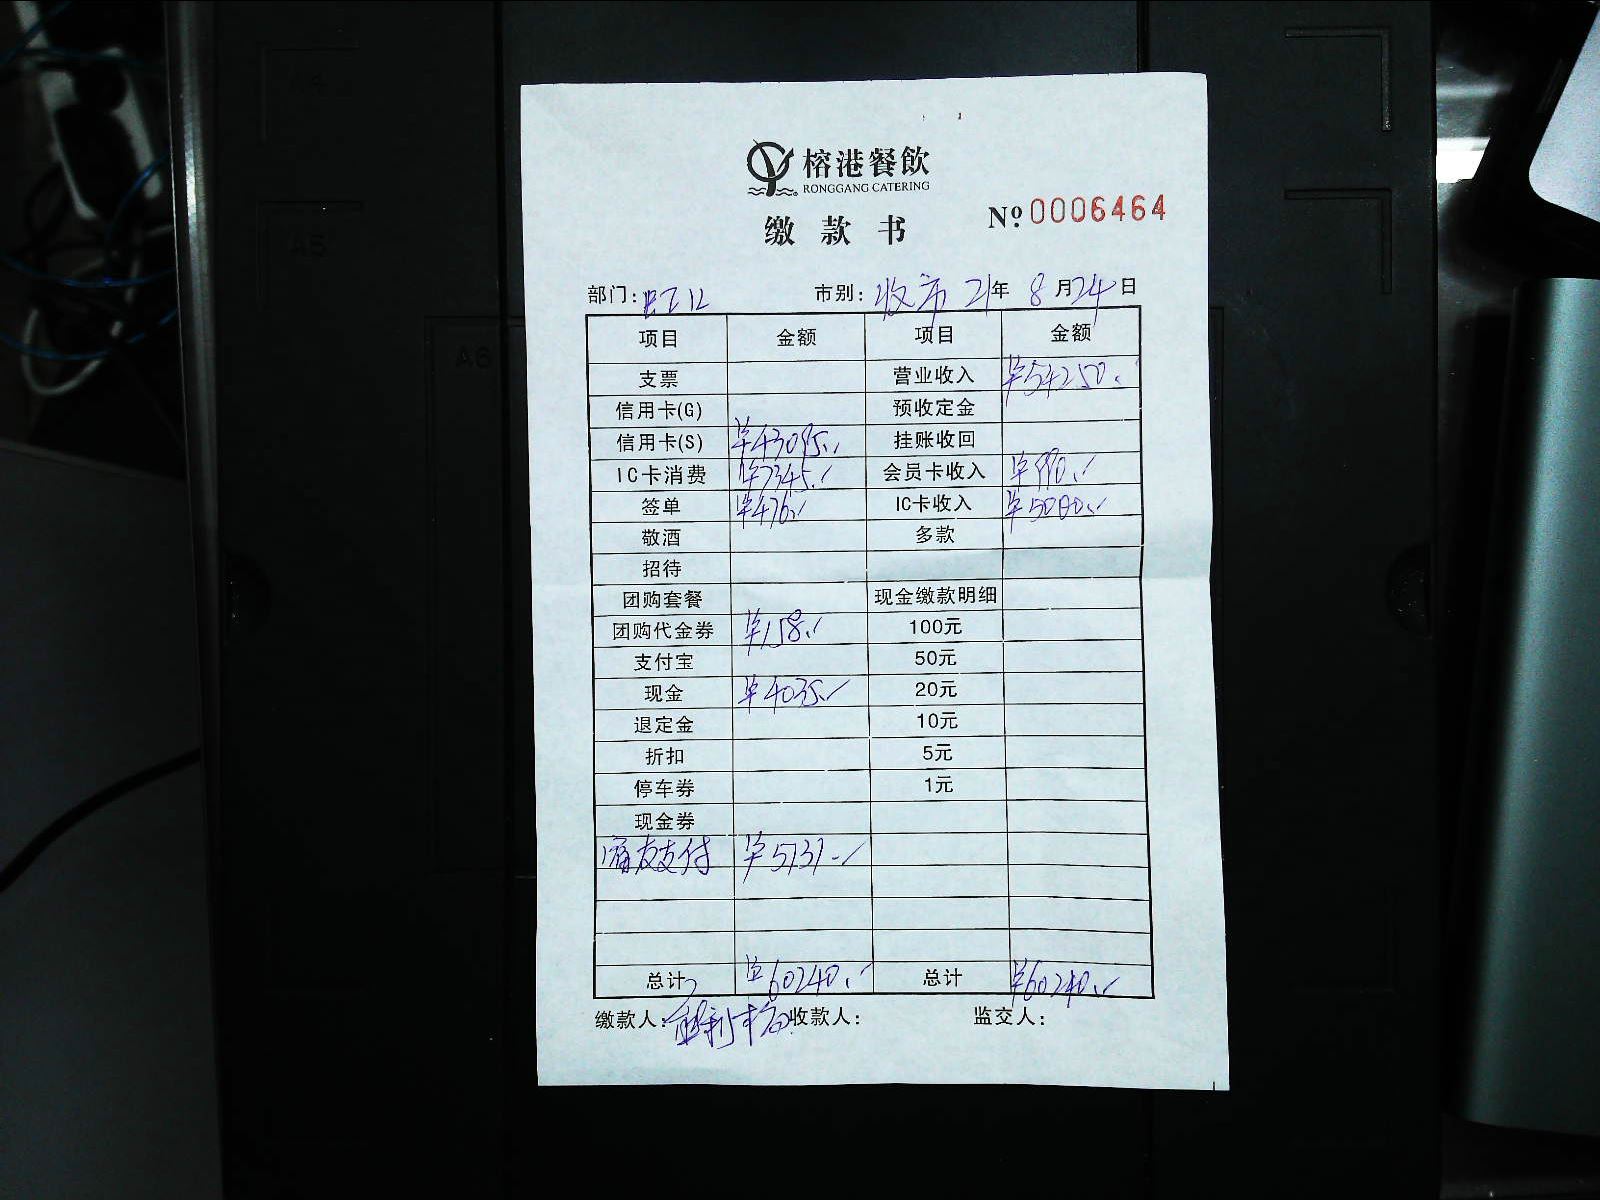 榕港餐飲
RONGGANG CATERING
缴款书
№ 0006464
部门: 市别: 收市 21年 8月24日
项目 金额 项目 金额
支票 营业收入 ¥54250.
信用卡(G) 预收定金
信用卡(S) ¥43095. 挂账收回
IC卡消费 ¥7345. 会员卡收入 ¥990.
签单 ¥476. IC卡收入 ¥5000.
敬酒 多款
招待
团购套餐 现金缴款明细
团购代金券 ¥158. 100元
支付宝 50元
现金 ¥4035. 20元
退定金 10元
折扣 5元
停车券 1元
现金券
友支付 ¥5131-
总计 ¥60240. 总计 ¥60240.
缴款人: 收款人: 监交人: